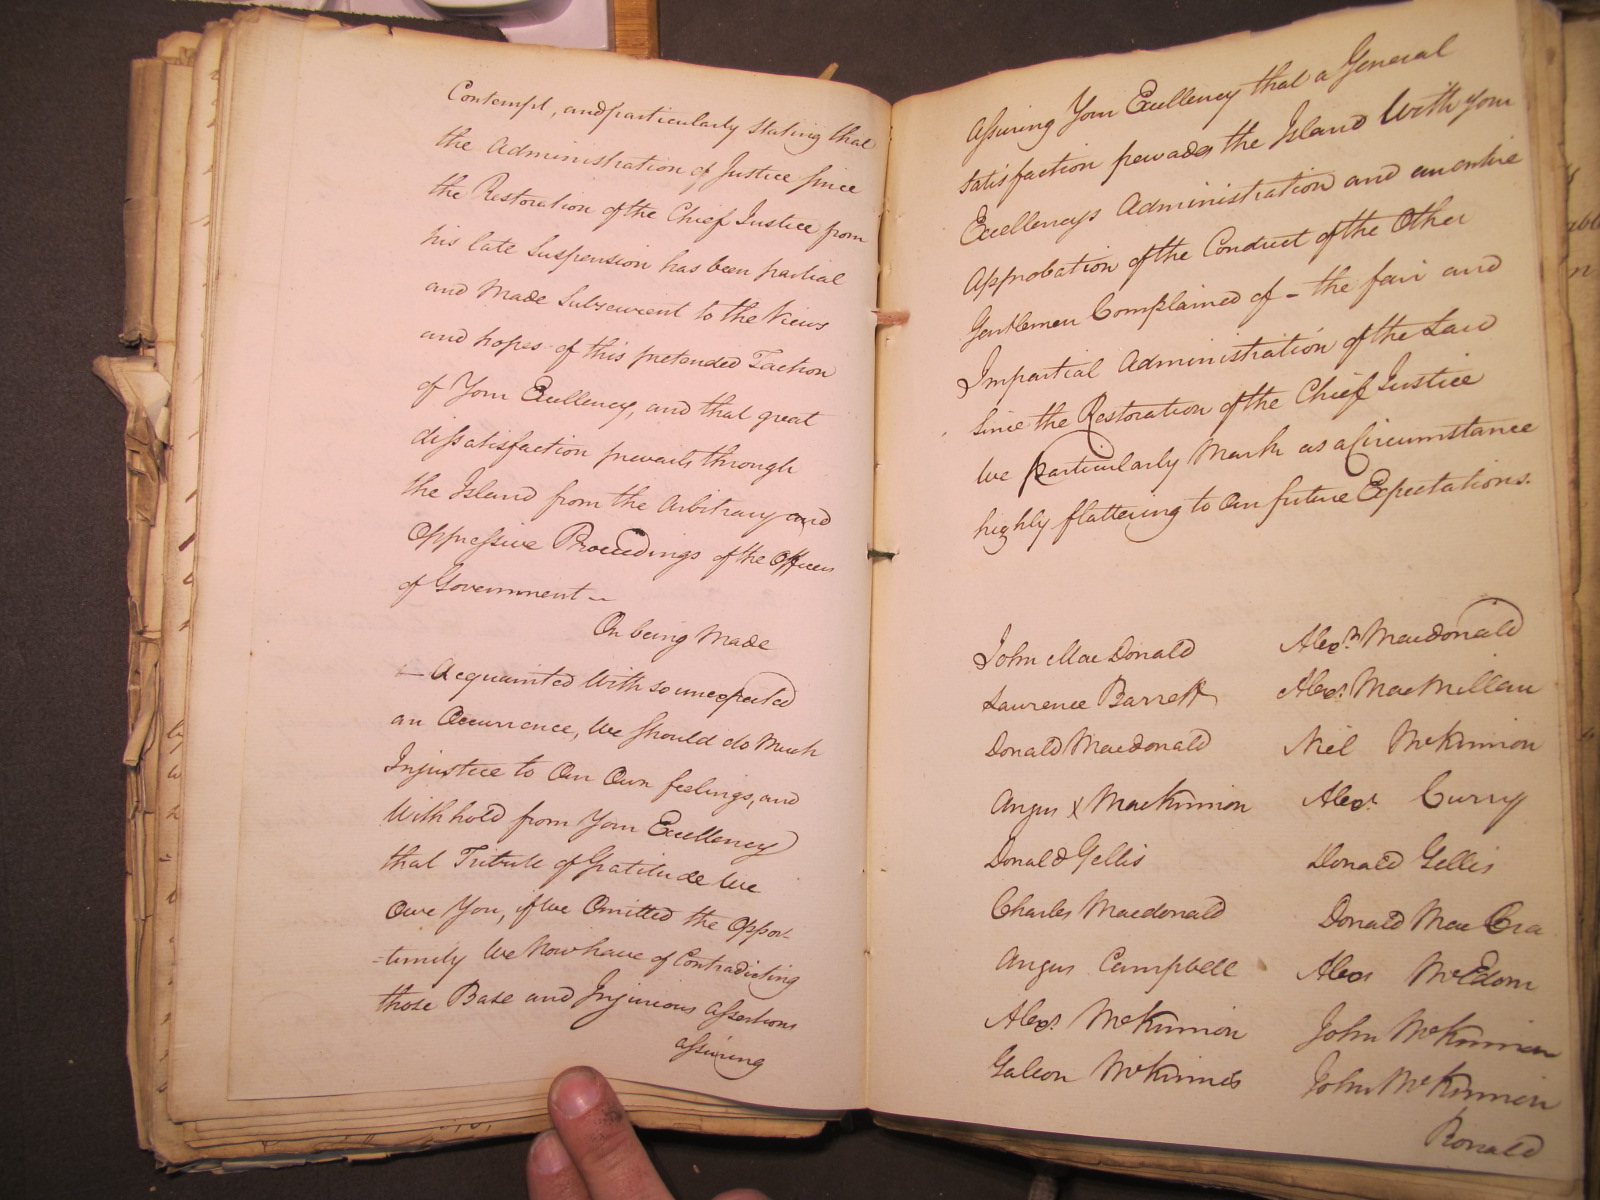 Contempt, and particularly stating that
the Administration of Justice since
the Restoration of the Chief Justice from
his late Suspension has been partial
and Made Subservient to the Views
and hopes of this pretended Faction
of Your Excellency, and that great
dissatisfaction prevails through
the Island from the Arbitrary and
Oppressive Proceedings of the Officers
of Government —
On being Made
— Acquainted With so unexpected
an Occurrence, We Should do Much
Injustice to Our Own feelings, and
With hold from Your Excellency
that Tribute of Gratitude We
Owe You, if We Omitted the Oppor-
-tunity We Now have of Contradicting
those Base and Injurious Assertions
assuring
Assuring Your Excellency that a General
satisfaction pervades the Island With your
Excellencys Administration and an entire
Approbation of the Conduct of the Other
Gentlemen Complained of – the fair and
Impartial Administration of the Law
Since the Restoration of the Chief Justice
We particularly Mark as a Circumstance
highly flattering to Our future Expectations.
John MacDonald Alexr. Macdonald
Lawrence Barrett Alexr. MacMillan
Donald Macdonald Niel McKinnon
Angus X MacKinnon Alexr. Curry
Donald Gellis Donald Gellis
Charles Macdonald Donald Mac Cra
Angus Campbell Alexr
Alexr. McKinnon John McKinnon
McKinnis John McKinnon
Ronald